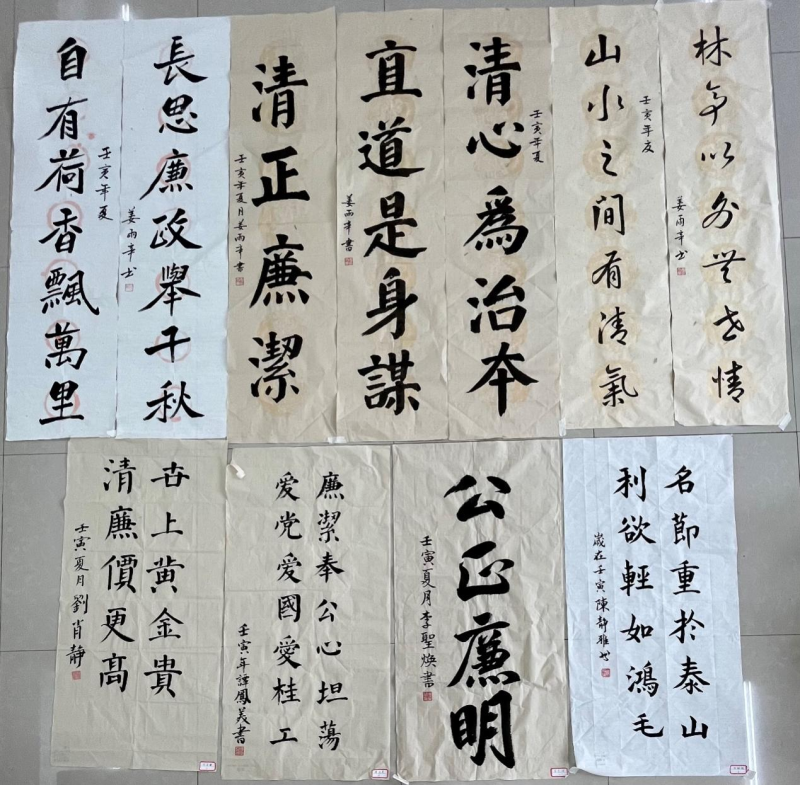 自有荷香飄萬里
壬寅年夏
長思廉政舉千秋
姜雨辛书
清正廉潔
壬寅年夏月姜雨辛書
清心爲治本
壬寅年夏
直道是身謀
姜雨辛書
山水之間有清氣
壬寅年夏
林亭以外無世情
姜雨辛书
世上黄金貴
清廉價更高
壬寅夏月劉肖靜
廉潔奉公心坦蕩
愛党愛國愛桂工
壬寅年譚鳳義書
公正廉明
壬寅夏月李聖焕書
名節重於泰山
利欲輕如鴻毛
歲在壬寅陳靜雅书